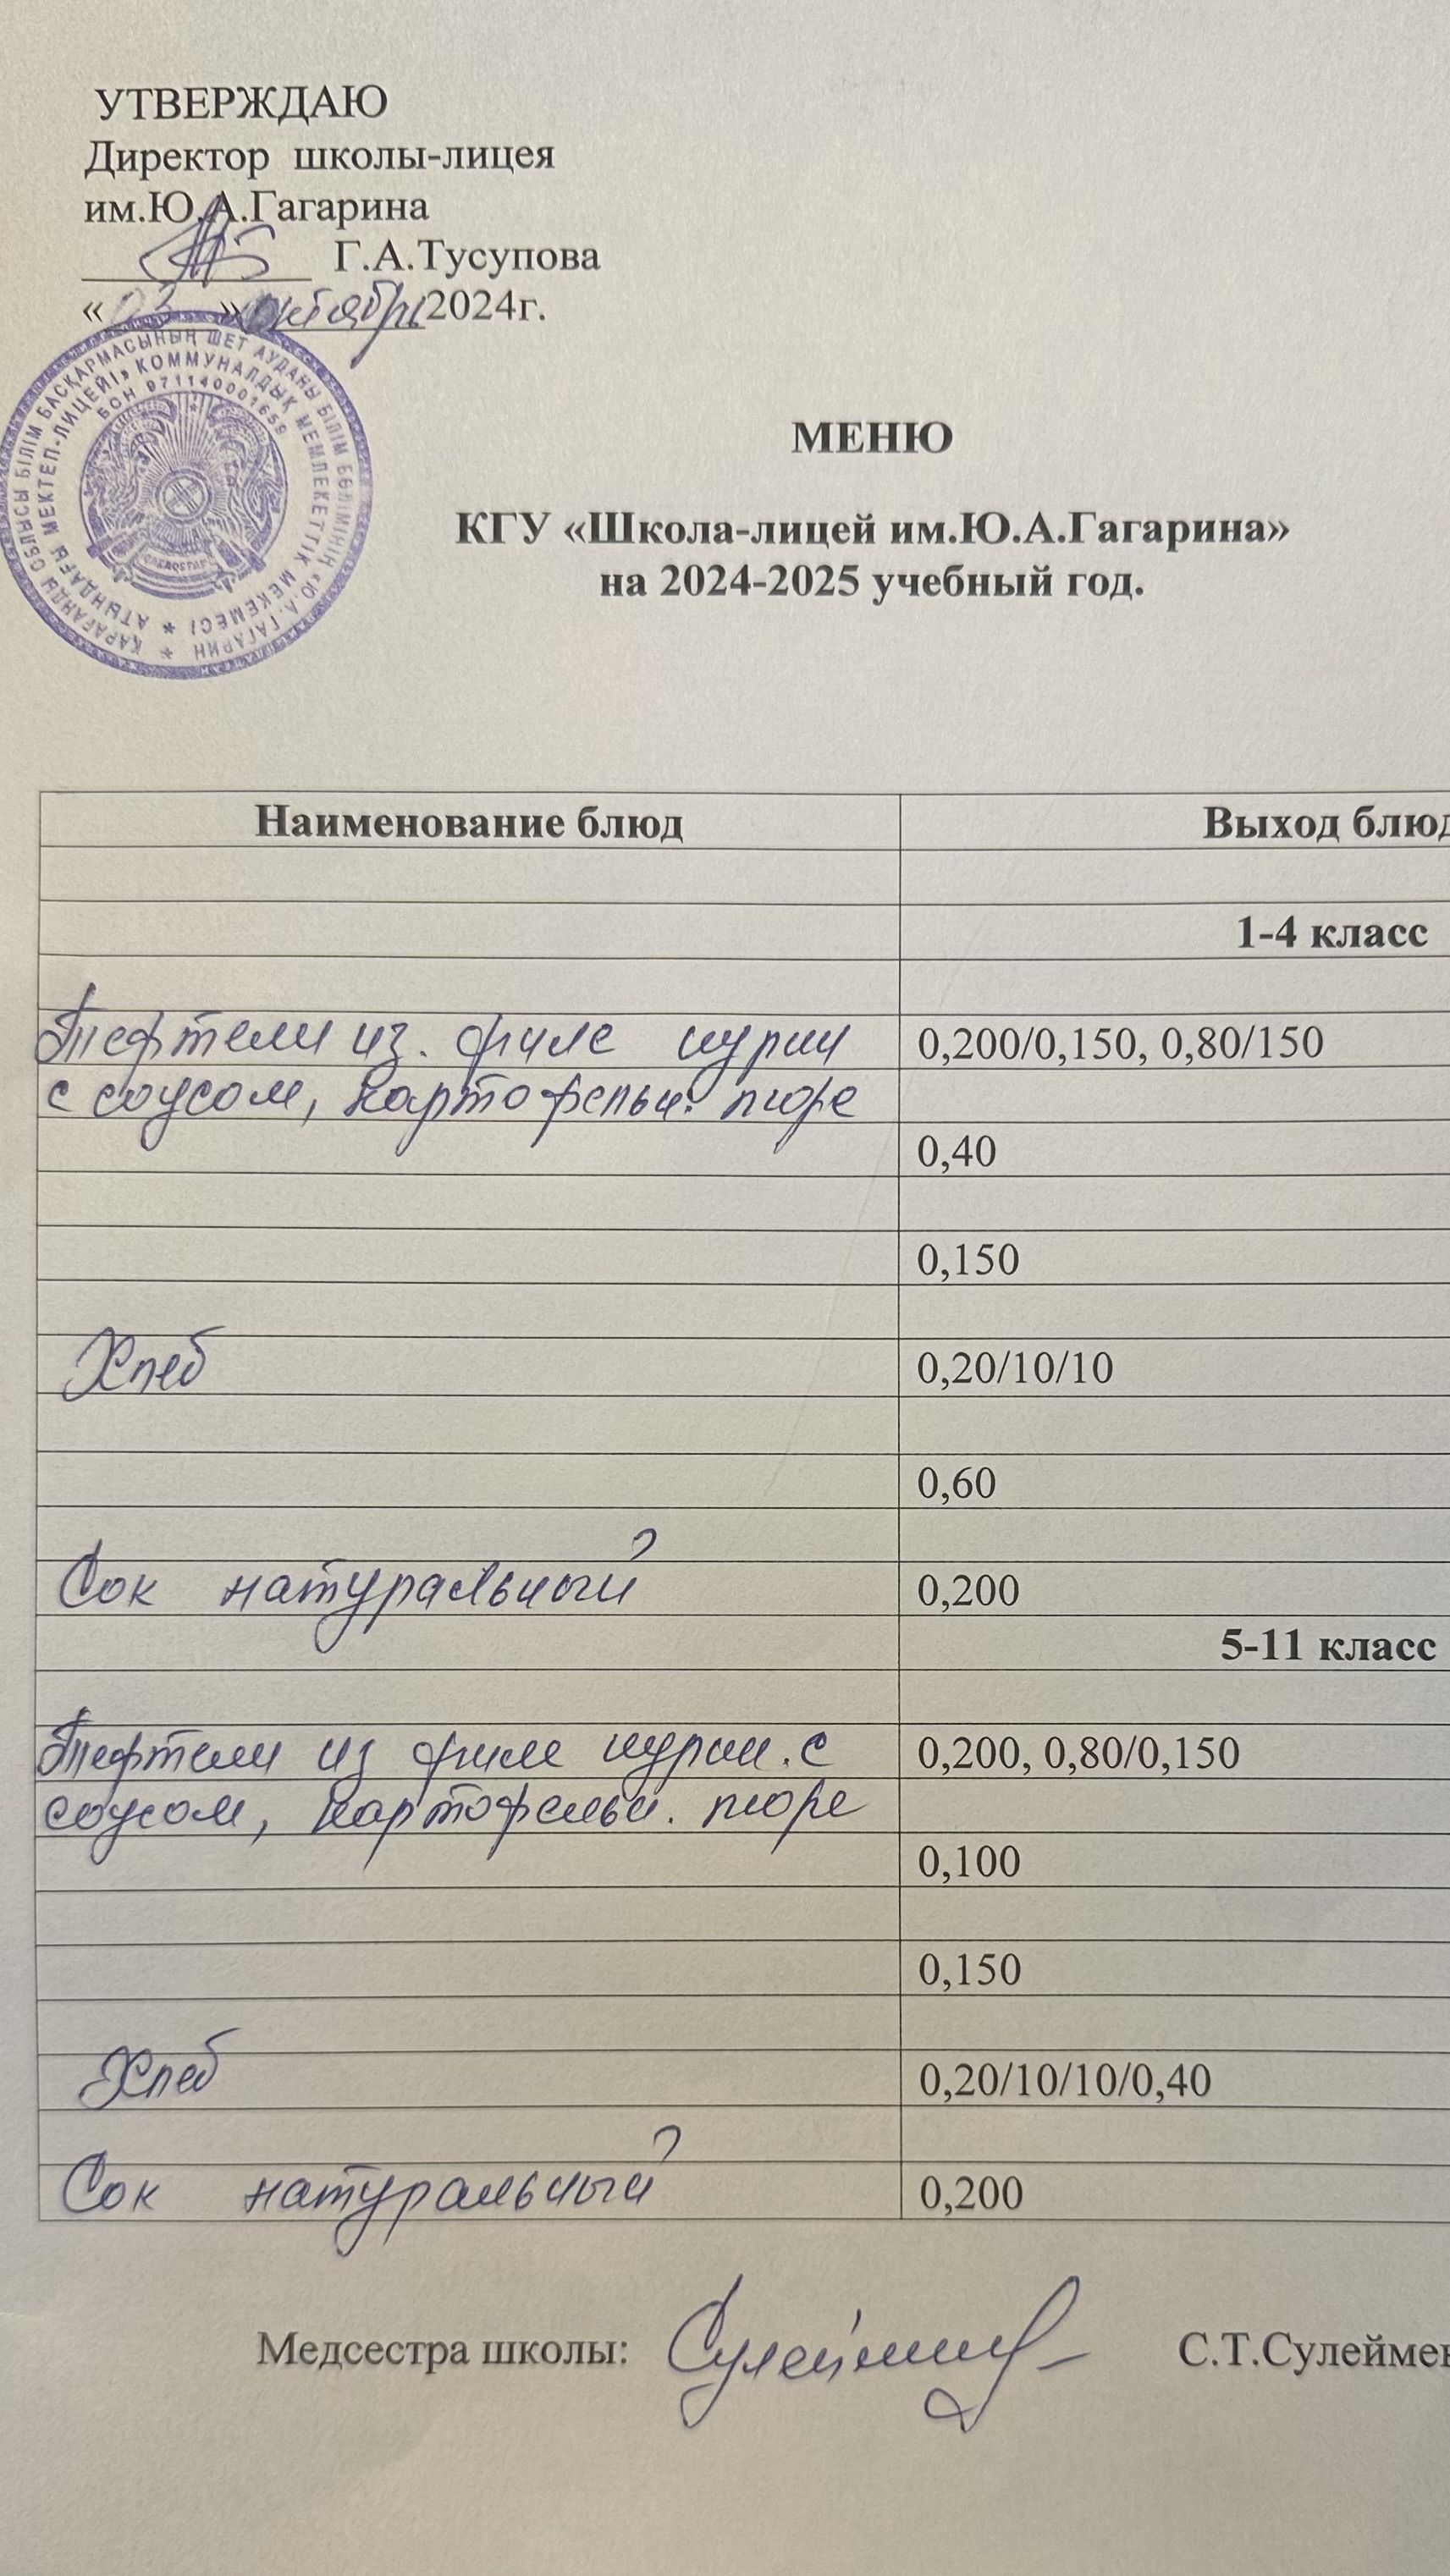 УТВЕРЖДАЮ
Директор школы-лицея
им.Ю.А.Гагарина
Г.А.Тусупова
«03» октября 2024г.
ҚАРАҒАНДЫ ОБЛЫСЫ БІЛІМ БАСҚАРМАСЫНЫҢ ШЕТ АУДАНЫ БІЛІМ БӨЛІМІНІҢ «Ю.А. ГАГАРИН
АТЫНДАҒЫ МЕКТЕП-ЛИЦЕЙІ» КОММУНАЛДЫҚ МЕМЛЕКЕТТІК МЕКЕМЕСІ
БСН 971140001659
МЕНЮ
КГУ «Школа-лицей им.Ю.А.Гагарина»
на 2024-2025 учебный год.
Наименование блюд Выход блюд
1-4 класс
Тефтели из. филе курин 0,200/0,150, 0,80/150
с соусом, картофельн. пюре
0,40
0,150
Хлеб 0,20/10/10
0,60
Сок натуральный 0,200
5-11 класс
Тефтели из филе курин. с 0,200, 0,80/0,150
соусом, картофельн. пюре
0,100
0,150
Хлеб 0,20/10/10/0,40
Сок натуральный 0,200
Медсестра школы: С.Т.Сулеймен